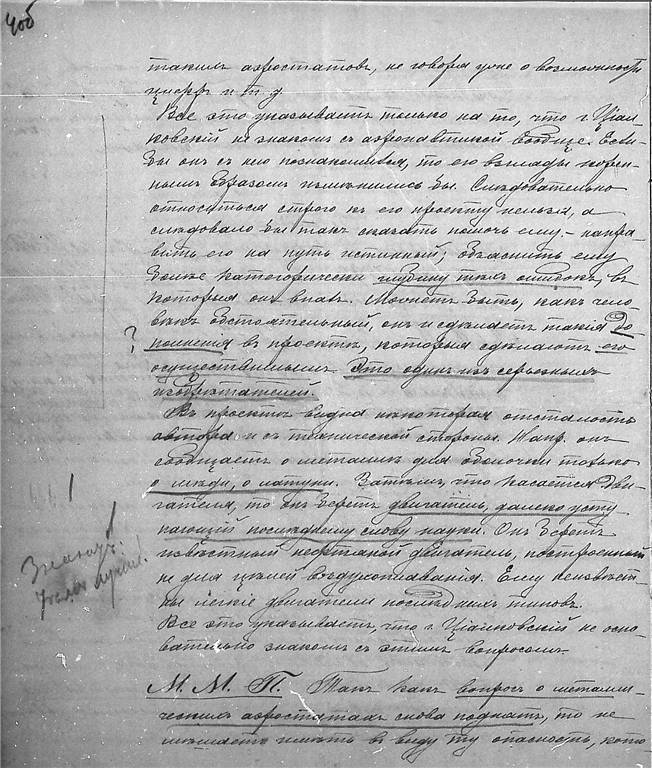 40б
такихъ аэростатовъ, не говоря уже о возможности
цифръ и т. д.
Все это указываетъ только на то, что г. Ціол-
ковскій не знакомъ съ аэронавтикой вообще. Если-
бы онъ съ нею познакомился, то его взгляды корен-
нымъ образомъ измѣнились бы. Слѣдовательно
относиться строго къ его проекту нельзя, а
слѣдовало бы такъ сказать помочь ему, – напра-
вить его на путь истинный; объяснить ему
болѣе категорически глубину тѣхъ ошибокъ, въ
которыя онъ впалъ. Можетъ быть, какъ чело-
вѣкъ обстоятельный, онъ и сдѣлаетъ такія до
?
полненія въ проектѣ, которыя сдѣлаютъ его
осуществимымъ. Это одинъ изъ серьезныхъ
изобрѣтателей.
Въ проектѣ видна нѣкоторая отсталость
автора и съ технической стороны. Напр. онъ
сообщаетъ о металлѣ для оболочки только
о мѣди, о латуни. Затѣмъ, что касается дви-
!
гателя, то онъ беретъ двигатель, далеко усту
пающій послѣднему слову науки. Онъ беретъ
извѣстный нефтяной двигатель, построенный
не для цѣлей воздухоплаванія. Ему неизвѣст-
ны легкіе двигатели послѣднихъ типовъ.
Все это указываетъ, что г. Ціолковскій не осно-
вательно знакомъ съ этимъ вопросомъ.
М. М. П. Такъ какъ вопросъ о металли-
ческихъ аэростатахъ снова поднятъ, то не
мѣшаетъ имѣть въ виду ту опасность, кото